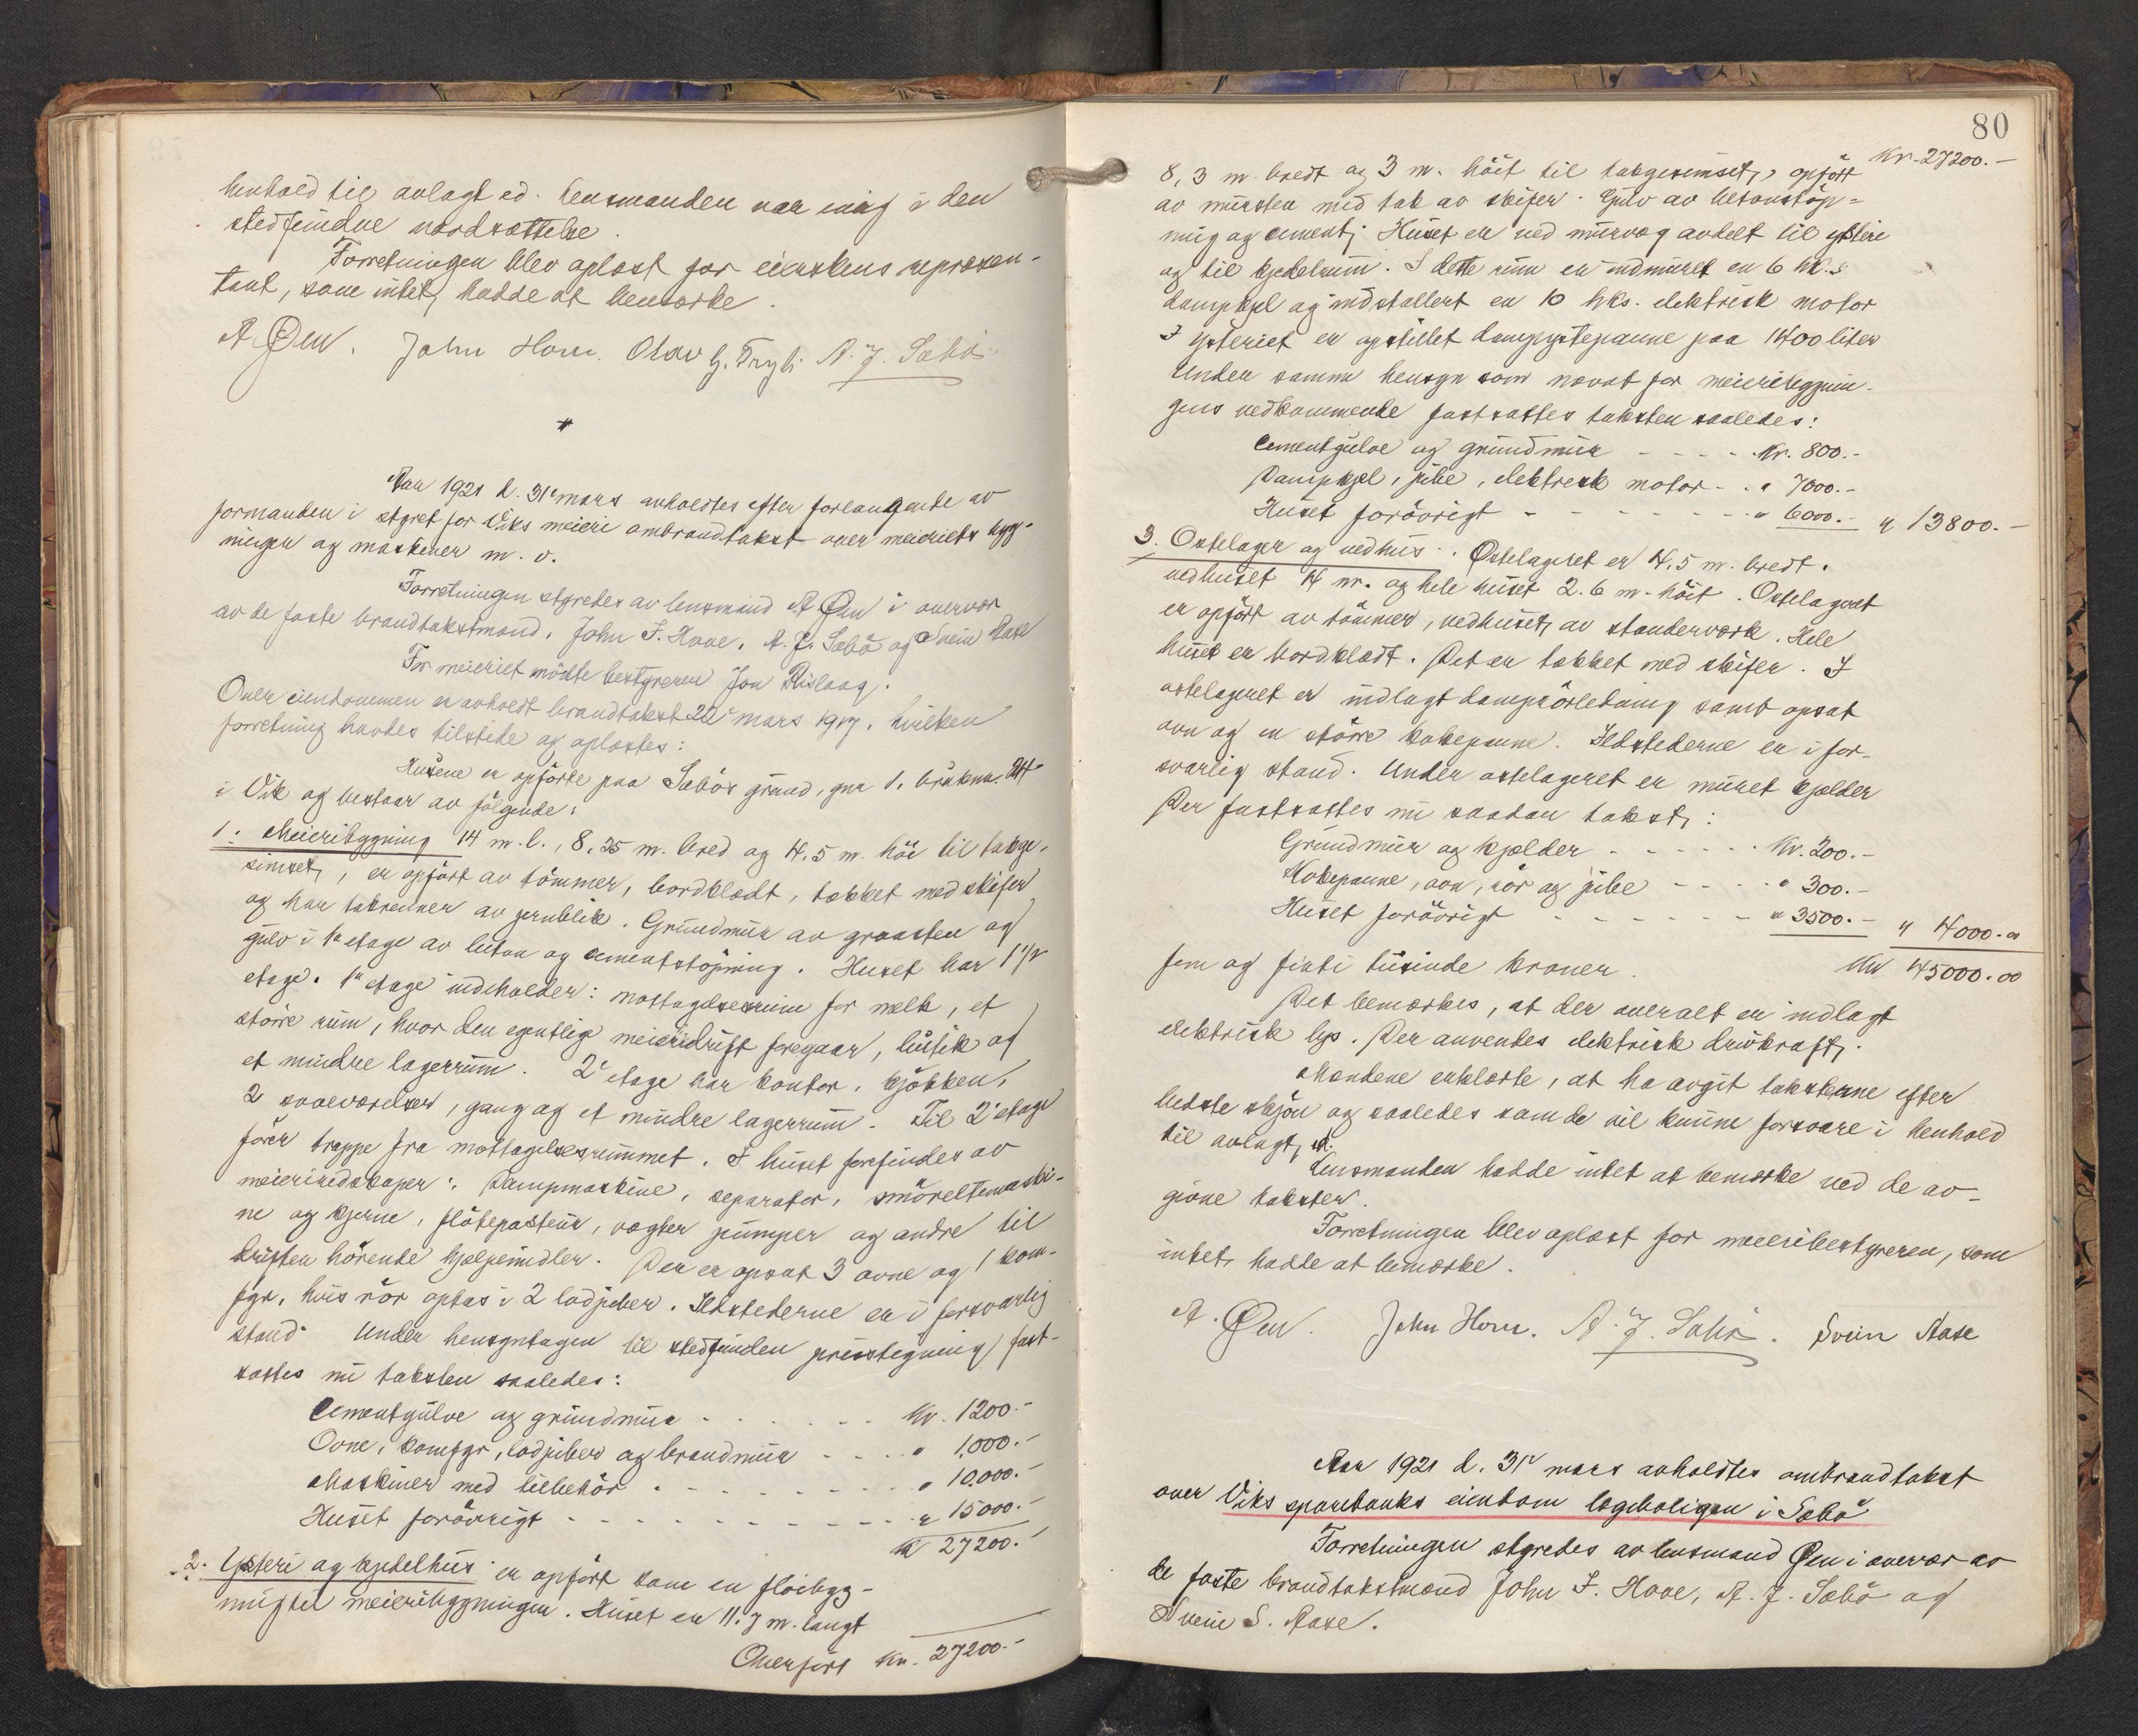 henhold til avlagt ed. Lensmanden var enig i den
stedfundne værdsættelse.
Forretningen blev oplæst for eierskens repræsen-
tant, som intet hadde at bemerke.
A. Øen. John Hove. Olav G. Tryti A. J. Sæbö.
*
Aar 1921 d. 31te mars avholdtes efter forlangende av
formanden i styret for Viks meieri ombrandtakst over meieriets byg-
ninger og maskiner m. v.
Forretningen styredes av lensmand A. Øen i overvær
av de faste brandtakstmænd, John I. Hove, A. J. Sæbö og Svein Aase
For meieriet mötte bestyreren Jon Rislaag.
Over eiendommen er avholdt brandtakst 22de mars 1917, hvilken
forretning havdes tilstede og oplæstes:
Husene er opförte paa Sæbös grund, gnr 1, bruksnr. 24
i Vik og bestaar av fölgende:
1. Meieribygning 14 m. l., 8,35 m. bred og 4.5 m. höi til takge-
simset, er opfört av tömmer, bordklædt, tækket med skifer
og har takrenner av jernblik. Grundmur av graasten og
gulv i 1ste etage av beton og cementstöpning. Huset har 1 1/2
etage. 1ste etage indeholder: mottagelsesrum for melk, et
större rum, hvor den egentlige meieridrift foregaar, butik og
et mindre lagerrum. 2den etage har kontor, kjökken,
2 soveværelser, gang og et mindre lagerrum. Til 2den etage
förer trappe fra mottagelsesrummet. I huset forefindes av
meieriredskaper: Dampmaskine, separator, smöreltemaski-
ne og kjerne, flötepasteur, vægter pumper og andre til
driften hörende hjælpemidler. Der er opsat 3 ovne og 1 kom-
fyr, hvis rör optas i 2 lodpiber. Ildstederne er i forsvarlig
stand. Under hensyntagen til stedfunden prisstigning fast-
sattes nu taksten saaledes:
Cementgulve og grundmur - - - - - Kr. 1200.-
Ovne, komfyr, lodpiber og brandmur - - - " 1.000.-
Maskiner med tilbehör - - - - - - " 10.000.-
Huset forövrigt - - - - - - - - " 15000.-
Kr 27200.-
2. Ysteri og kjedelhus er opfört som en flöibyg-
ning til meieribygningen. Huset er 11.7 m. langt
Overfört Kr. 27200.-
80
Kr. 27200.-
8,3 m. bredt og 3 m. höit til takgesimset, opfört
av mursten med tak av skifer. Gulv av betonstöp-
ning og cement; Huset er ved murvæg avdelt til ysteri
og til kjedelrum. I dette rum er indmuret en 6 hk.s
dampkjel og indstallert en 10 hks. elektrisk motor
I ysteriet er opstillet dampystepanne paa 1400 liter
Under samme hensyn som nævnt for meieribygnin-
gens vedkommende fastsattes taksten saaledes:
Cementgulve og grundmur - - - - Kr. 800.-
Dampkjel, pibe, elektrisk motor - - " 7000.-
Huset forövrigt - - - - - - " 6000.- " 13800.-
3. Ostelager og vedhus. Ostelageret er 4,5 m. bredt.
vedhuset 4 m. og hele huset 2.6 m. höit. Ostelageret
er opfört av tömmer, vedhuset av stenderverk. Hele
huset er bordklædt. Det er tækket med skifer. I
ostelageret er indlagt damprörledning samt opsat
ovn og en större kokepanne. Ildstederne er i for-
svarlig stand. Under ostelageret er muret kjelder
Der fastsattes nu saadan takst:
Grundmur og kjelder - - - - - Kr. 200.-
Kokepanne, ovn, rör og pibe - - - - " 300.-
Huset forövrigt - - - - - - " 3500.- " 4000.00
fem og firti tusinde kroner. Kr 45000.00
Det bemerkes, at der overalt er indlagt
elektrisk lys. Der anvendes elektrisk drivkraft.
Mændene erklærte, at ha avgit taksterne efter
bedste skjön og saaledes som de vil kunne forsvare i henhold
til avlagt ed.
Lensmanden hadde intet at bemerke ved de av-
givne takster.
Forretningen blev oplæst for meieribestyreren, som
intet hadde at bemerke.
A. Øen. John Hove. A. J. Sæbö. Svein Aase
Aar 1921 d. 31te mars avholdtes ombrandtakst
over Viks sparebanks eiendom lægeboligen i Sæbö
Forretningen styredes av lensmand Øen i overvær av
de faste brandtakstmænd John I. Hove, A. J. Sæbö og
Svein S. Aase.